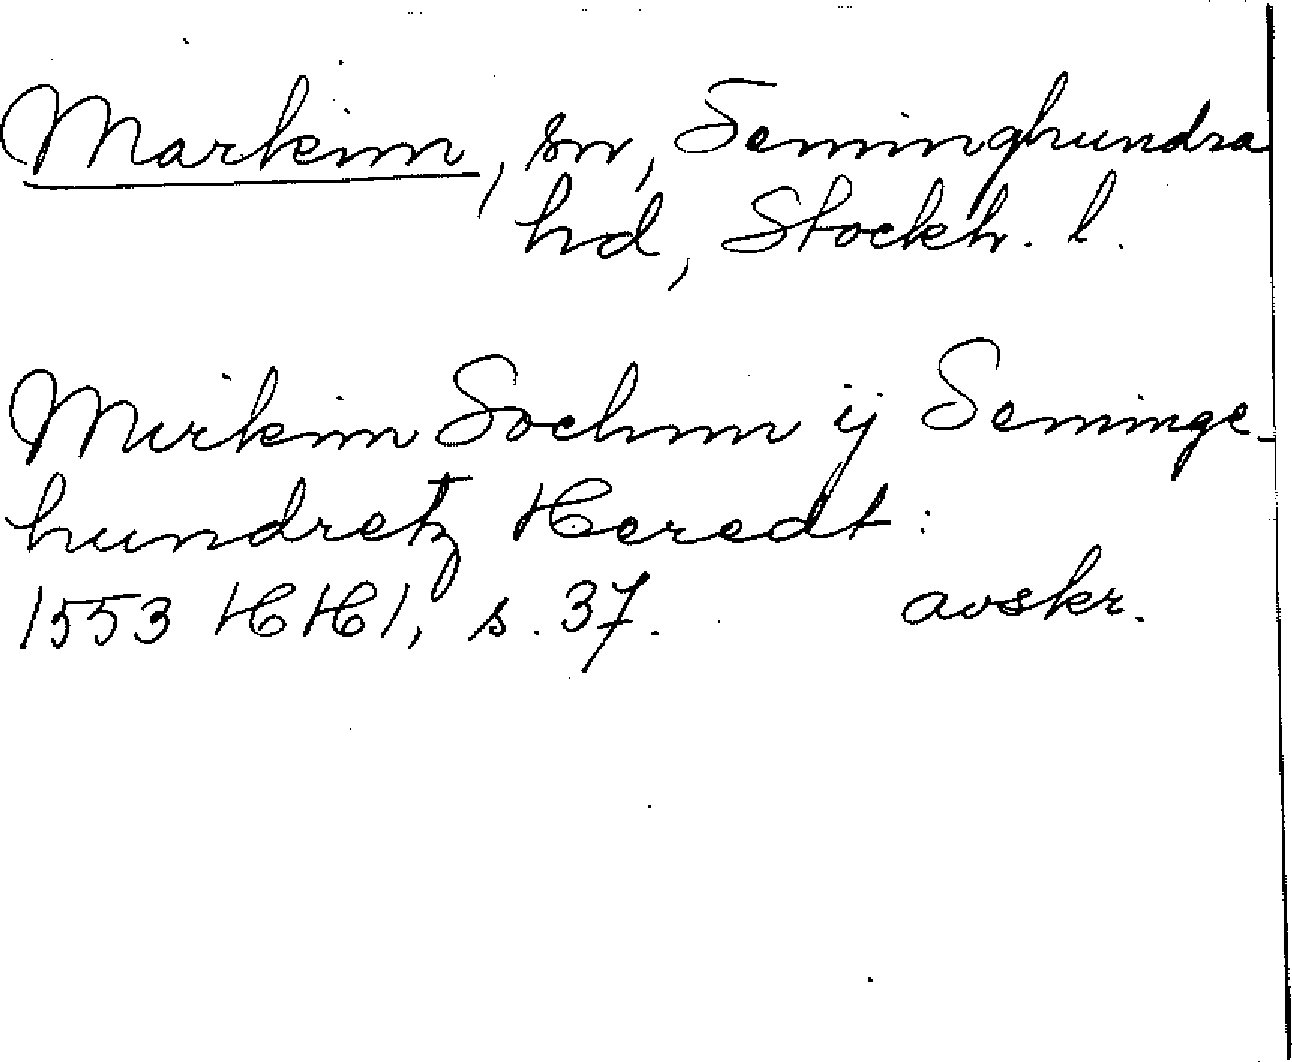 Markim, sn, Seminghundra
hd, Stockh. l.
Mirkim Sochnn ij Seminge-
hundretz Heredt:
1553 HH1, s. 37. avskr.